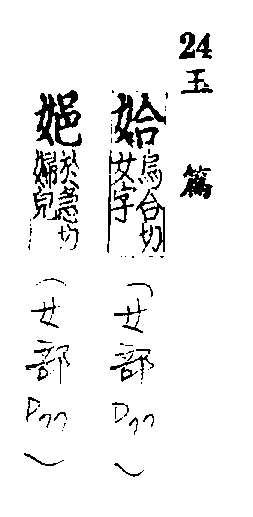 24玉篇
姶烏合切女字(女部P77)
㛕於急切婦皃(女部P77)